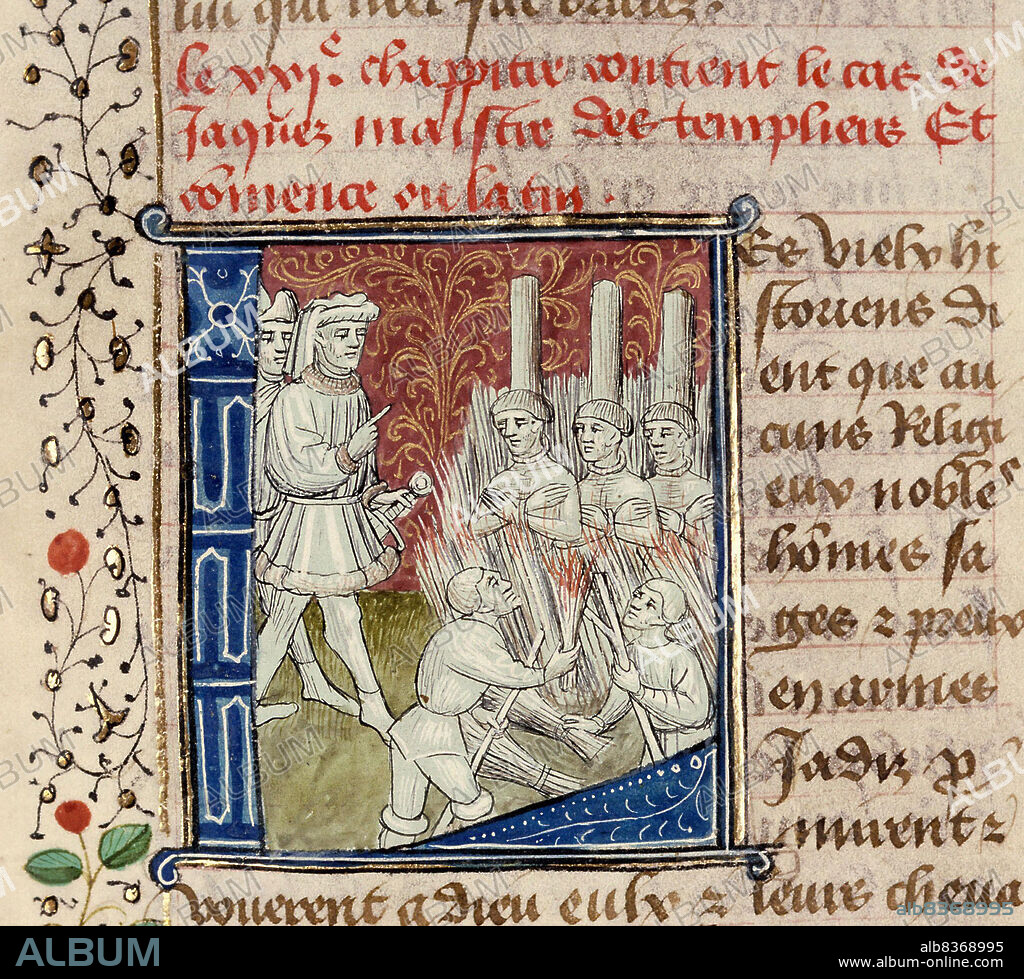 le xxjᵉ. chappitre contient le cas de
Jaques maistre des templiers Et
cōmence ou latin .
Es vielx hi
storiens di
ent que au
cuns Religi
eux noble
hōmes sa
ges ⁊ preux
en armes
Jadiz p
⁊
vouerent a dieu eulx ⁊ leurs cheva
alb8368995
ALBUM
alb8368995
www.album-online.com